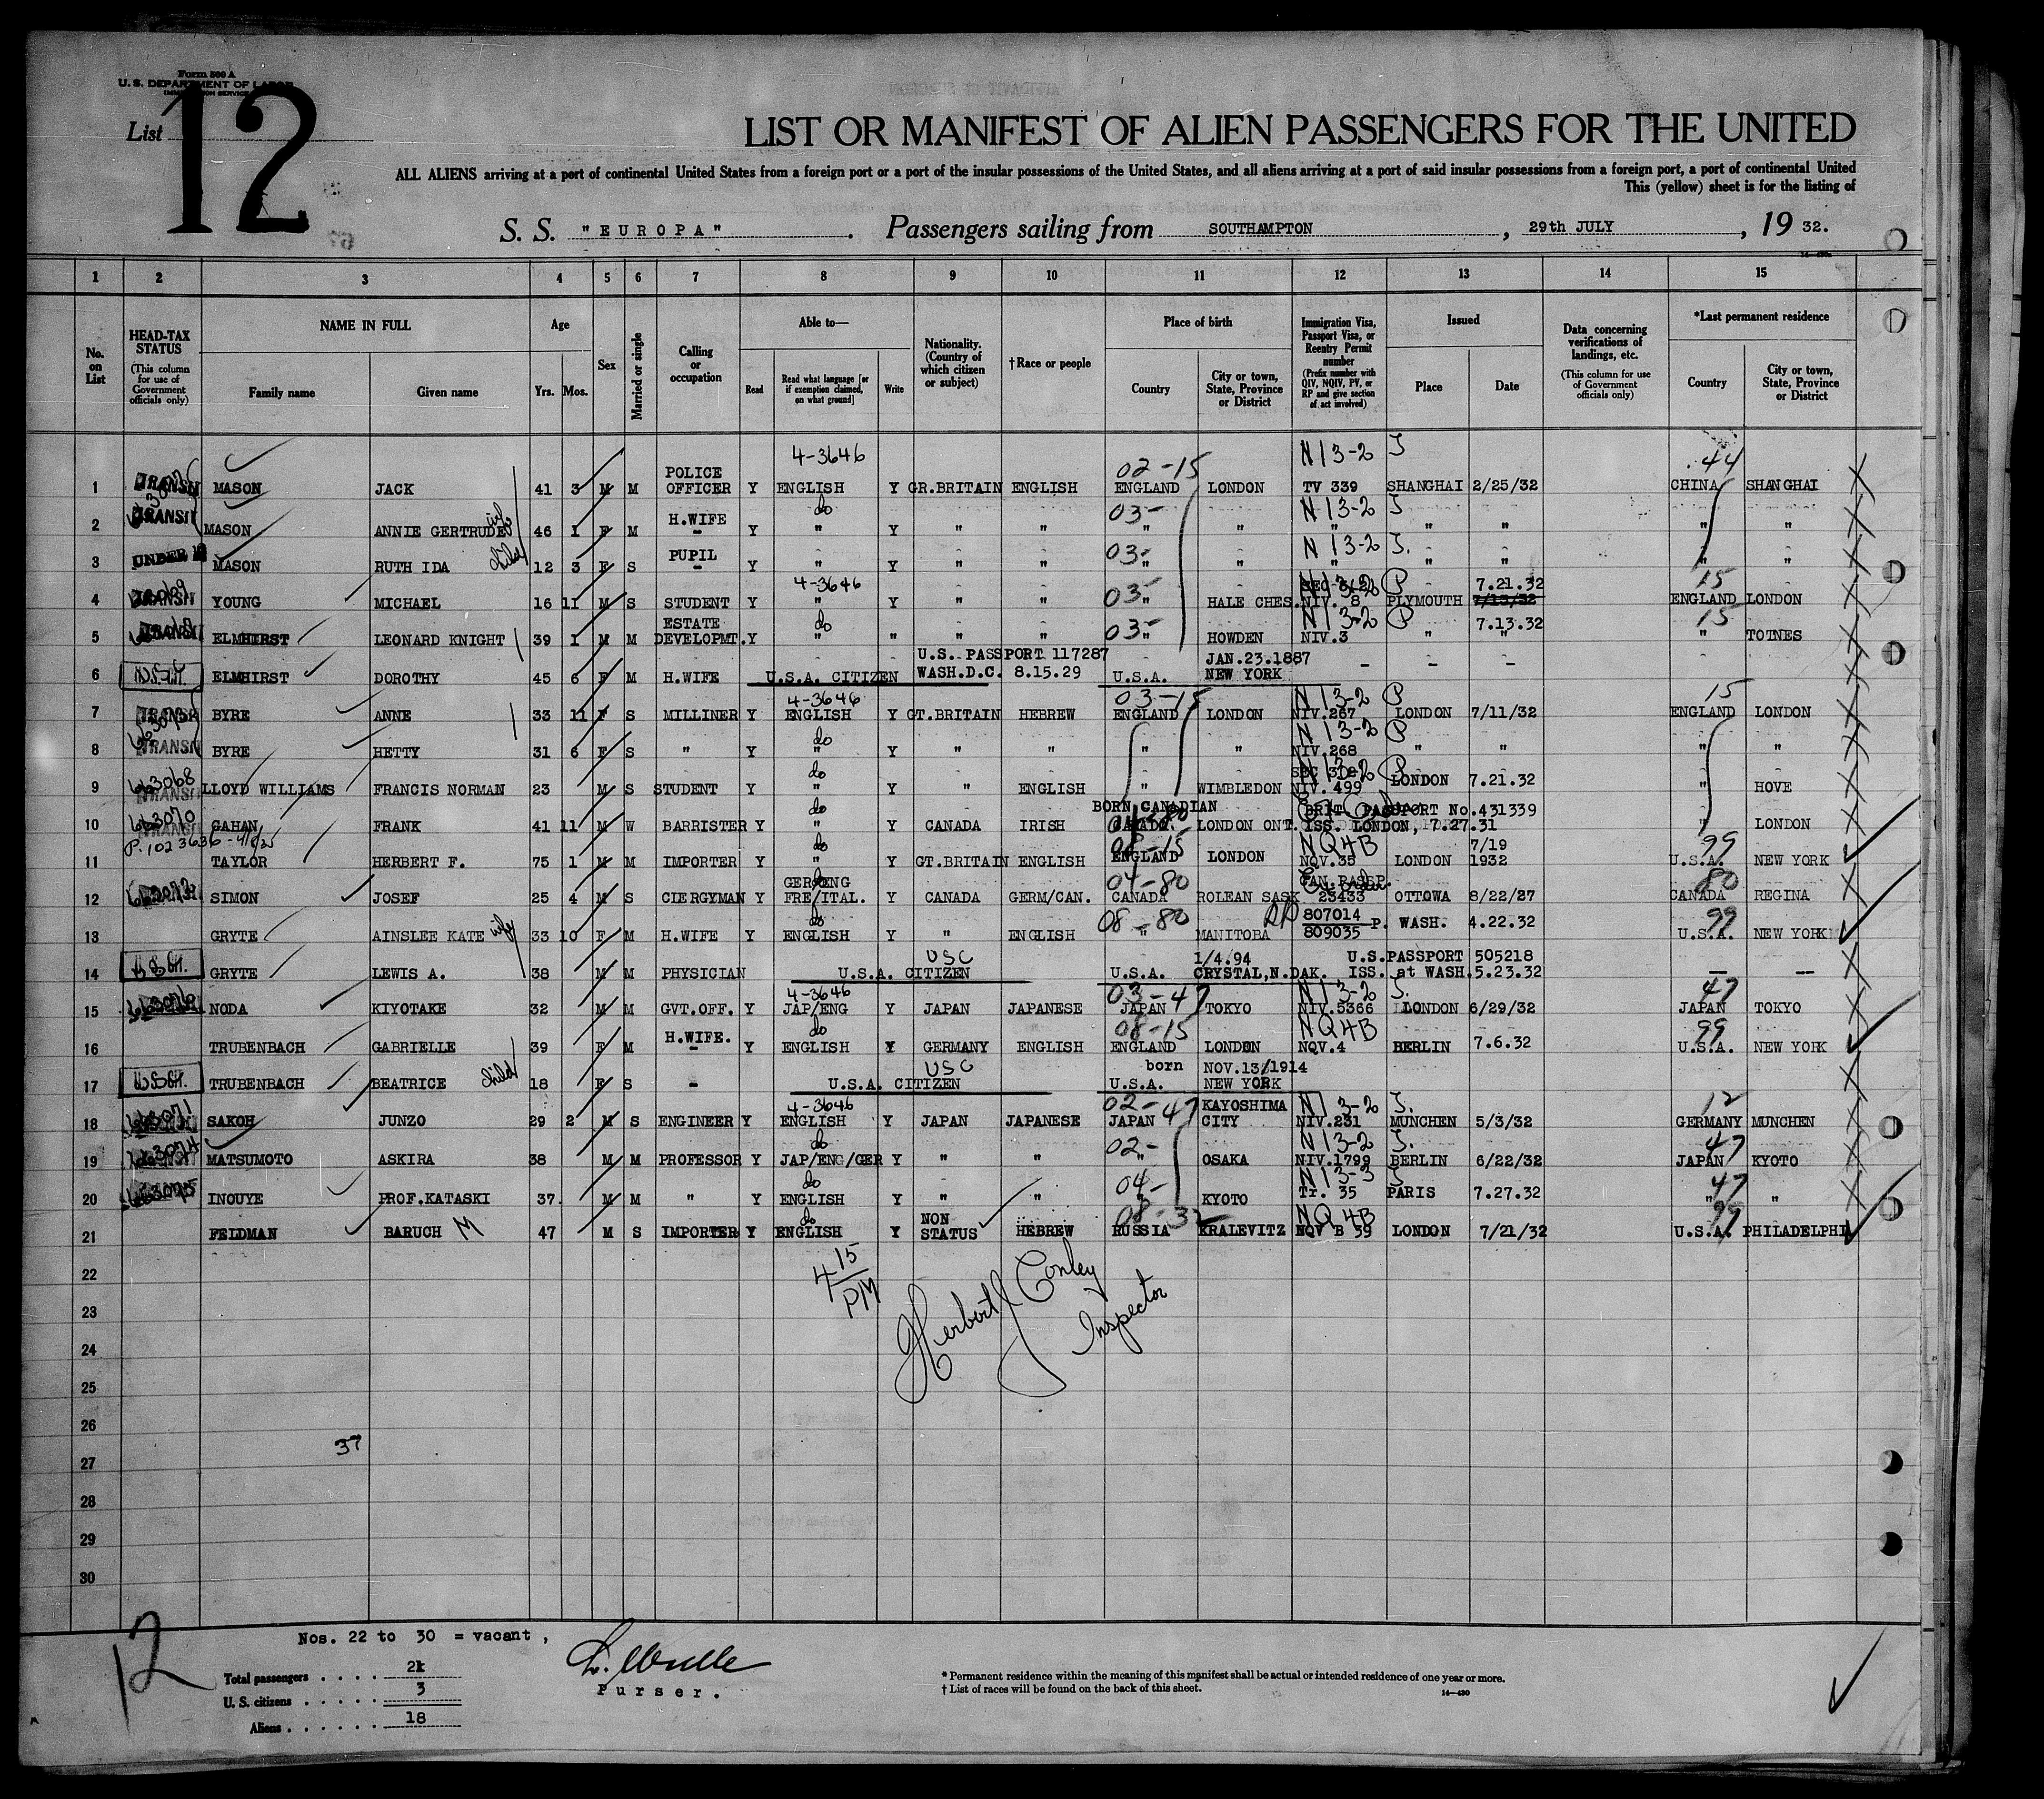 Form 500 A
U. S. DEPARTMENT OF LABOR
IMMIGRATION SERVICE
List 12
LIST OR MANIFEST OF ALIEN PASSENGERS FOR THE UNITED
ALL ALIENS arriving at a port of continental United States from a foreign port or a port of the insular possessions of the United States, and all aliens arriving at a port of said insular possessions from a foreign port, a port of continental United
This (yellow) sheet is for the listing of
S. S. "EUROPA". Passengers sailing from SOUTHAMPTON, 29th JULY, 19 32.
1 2 3 4 5 6 7 8 9 10 11 12 13 14 15
No. on List
HEAD-TAX STATUS (This column for use of Government officials only)
NAME IN FULL Family name Given name
Age Yrs. Mos.
Sex
Married or single
Calling or occupation
Able to— Read Read what language [or if exemption claimed, on what ground] Write
Nationality. (Country of which citizen or subject)
†Race or people
Place of birth Country City or town, State, Province or District
Immigration Visa, Passport Visa, or Reentry Permit number (Prefix number with QIV, NQIV, PV, or RP and give section of act involved)
Issued Place Date
Data concerning verifications of landings, etc. (This column for use of Government officials only)
*Last permanent residence Country City or town, State, Province or District
4-3646 02-15 N 13-2 44
1 TRANSIT MASON JACK 41 3 M M POLICE OFFICER Y ENGLISH Y GR.BRITAIN ENGLISH ENGLAND LONDON TV 339 SHANGHAI 2/25/32 CHINA SHANGHAI
do 03- N 13-2
2 TRANSIT MASON ANNIE GERTRUDE wife 46 1 F M H.WIFE Y " Y " " " " " " " " "
03- N 13-2
3 UNDER 16 MASON RUTH IDA child 12 3 F S PUPIL Y " Y " " " " " " " " "
4-3646 03- 15
4 TRANSIT YOUNG MICHAEL 16 11 M S STUDENT Y " Y " " " HALE CHES. NIV. 8 PLYMOUTH 7.21.32 7/13/32 ENGLAND LONDON
do 03- N 13-2 P 15
5 TRANSIT ELMHIRST LEONARD KNIGHT 39 1 M M ESTATE DEVELOPMT. Y " " " " " HOWDEN NIV.3 " 7.13.32 " " TOTNES
6 ELMHIRST DOROTHY 45 6 F M H.WIFE U.S.A. CITIZEN U.S. PASSPORT 117287 WASH.D.C. 8.15.29 U.S.A. JAN.23.1887 NEW YORK - - -
4-3646 03-15 N 13-2 P 15
7 TRANSIT BYRE ANNE 33 11 F S MILLINER Y ENGLISH Y GT.BRITAIN HEBREW ENGLAND LONDON NIV.267 LONDON 7/11/32 ENGLAND LONDON
do N 13-2 P
8 TRANSIT BYRE HETTY 31 6 F S " Y " Y " " " " NIV.268 " " " "
do
9 663068 TRANSIT LLOYD WILLIAMS FRANCIS NORMAN 23 M S STUDENT Y " Y " ENGLISH " WIMBLEDON NIV. 499 LONDON 7.21.32 " HOVE
do BORN CANADIAN
10 663070 TRANSIT GAHAN FRANK 41 11 M W BARRISTER Y " Y CANADA IRISH CANADA LONDON ONT. BRIT. PASSPORT No.431339 ISS. LONDON, 7.27.31 " LONDON
do 08-15 NQ4B 99
11 TAYLOR HERBERT F. 75 1 M M IMPORTER Y " Y GT.BRITAIN ENGLISH ENGLAND LONDON NQV.35 LONDON 7/19 1932 U.S.A. NEW YORK
04-80 80
12 SIMON JOSEF 25 4 M S CLERGYMAN Y GER/ENG FRE/ITAL. Y CANADA GERM/CAN. CANADA ROLEAN SASK CAN.PASSP. 23433 OTTOWA 8/22/27 CANADA REGINA
do 08-80 99
13 GRYTE AINSLEE KATE wife 33 10 F M H.WIFE Y ENGLISH Y " ENGLISH " MANITOBA 807014 809035 P. WASH. 4.22.32 U.S.A. NEW YORK
USC
14 GRYTE LEWIS A. 38 M M PHYSICIAN U.S.A. CITIZEN U.S.A. 1/4.94 CRYSTAL,N.DAK. U.S.PASSPORT 505218 ISS. at WASH.5.23.32 — —
4-3646 03-47 N 13-2 47
15 NODA KIYOTAKE 32 M M GVT.OFF. Y JAP/ENG Y JAPAN JAPANESE JAPAN TOKYO NIV.5366 LONDON 6/29/32 JAPAN TOKYO
do 08-15 NQ4B 99
16 TRUBENBACH GABRIELLE 39 F M H.WIFE. Y ENGLISH Y GERMANY ENGLISH ENGLAND LONDON NQV.4 BERLIN 7.6.32 U.S.A. NEW YORK
USC
17 TRUBENBACH BEATRICE child 18 F S - U.S.A. CITIZEN U.S.A. born NOV.13/1914 NEW YORK
4-3646 02-47 N 13-2 12
18 663071 SAKOH JUNZO 29 2 M S ENGINEER Y ENGLISH Y JAPAN JAPANESE JAPAN KAYOSHIMA CITY NIV.231 MUNCHEN 5/3/32 GERMANY MUNCHEN
do 02- N 13-2 47
19 663074 MATSUMOTO ASKIRA 38 M M PROFESSOR Y JAP/ENG/GER Y " " " OSAKA NIV.1799 BERLIN 6/22/32 JAPAN KYOTO
do 04- N 13-3 47
20 663075 INOUYE PROF.KATASKI 37. M M " Y ENGLISH Y " " " KYOTO Tr. 35 PARIS 7.27.32 " "
do 08-32 NQ4B 99
21 FELDMAN BARUCH M 47 M S IMPORTER Y ENGLISH Y NON STATUS HEBREW RUSSIA KRALEVITZ NQV B 39 LONDON 7/21/32 U.S.A. PHILADELPHIA
22
4 15 PM
23
Herbert J Conley Inspector
24
25
26
37
27
28
29
30
12
Nos. 22 to 30 = vacant,
Total passengers . . . . 21
U. S. citizens . . . . . 3
Aliens . . . . . . 18
Purser.
* Permanent residence within the meaning of this manifest shall be actual or intended residence of one year or more.
† List of races will be found on the back of this sheet.
14—430